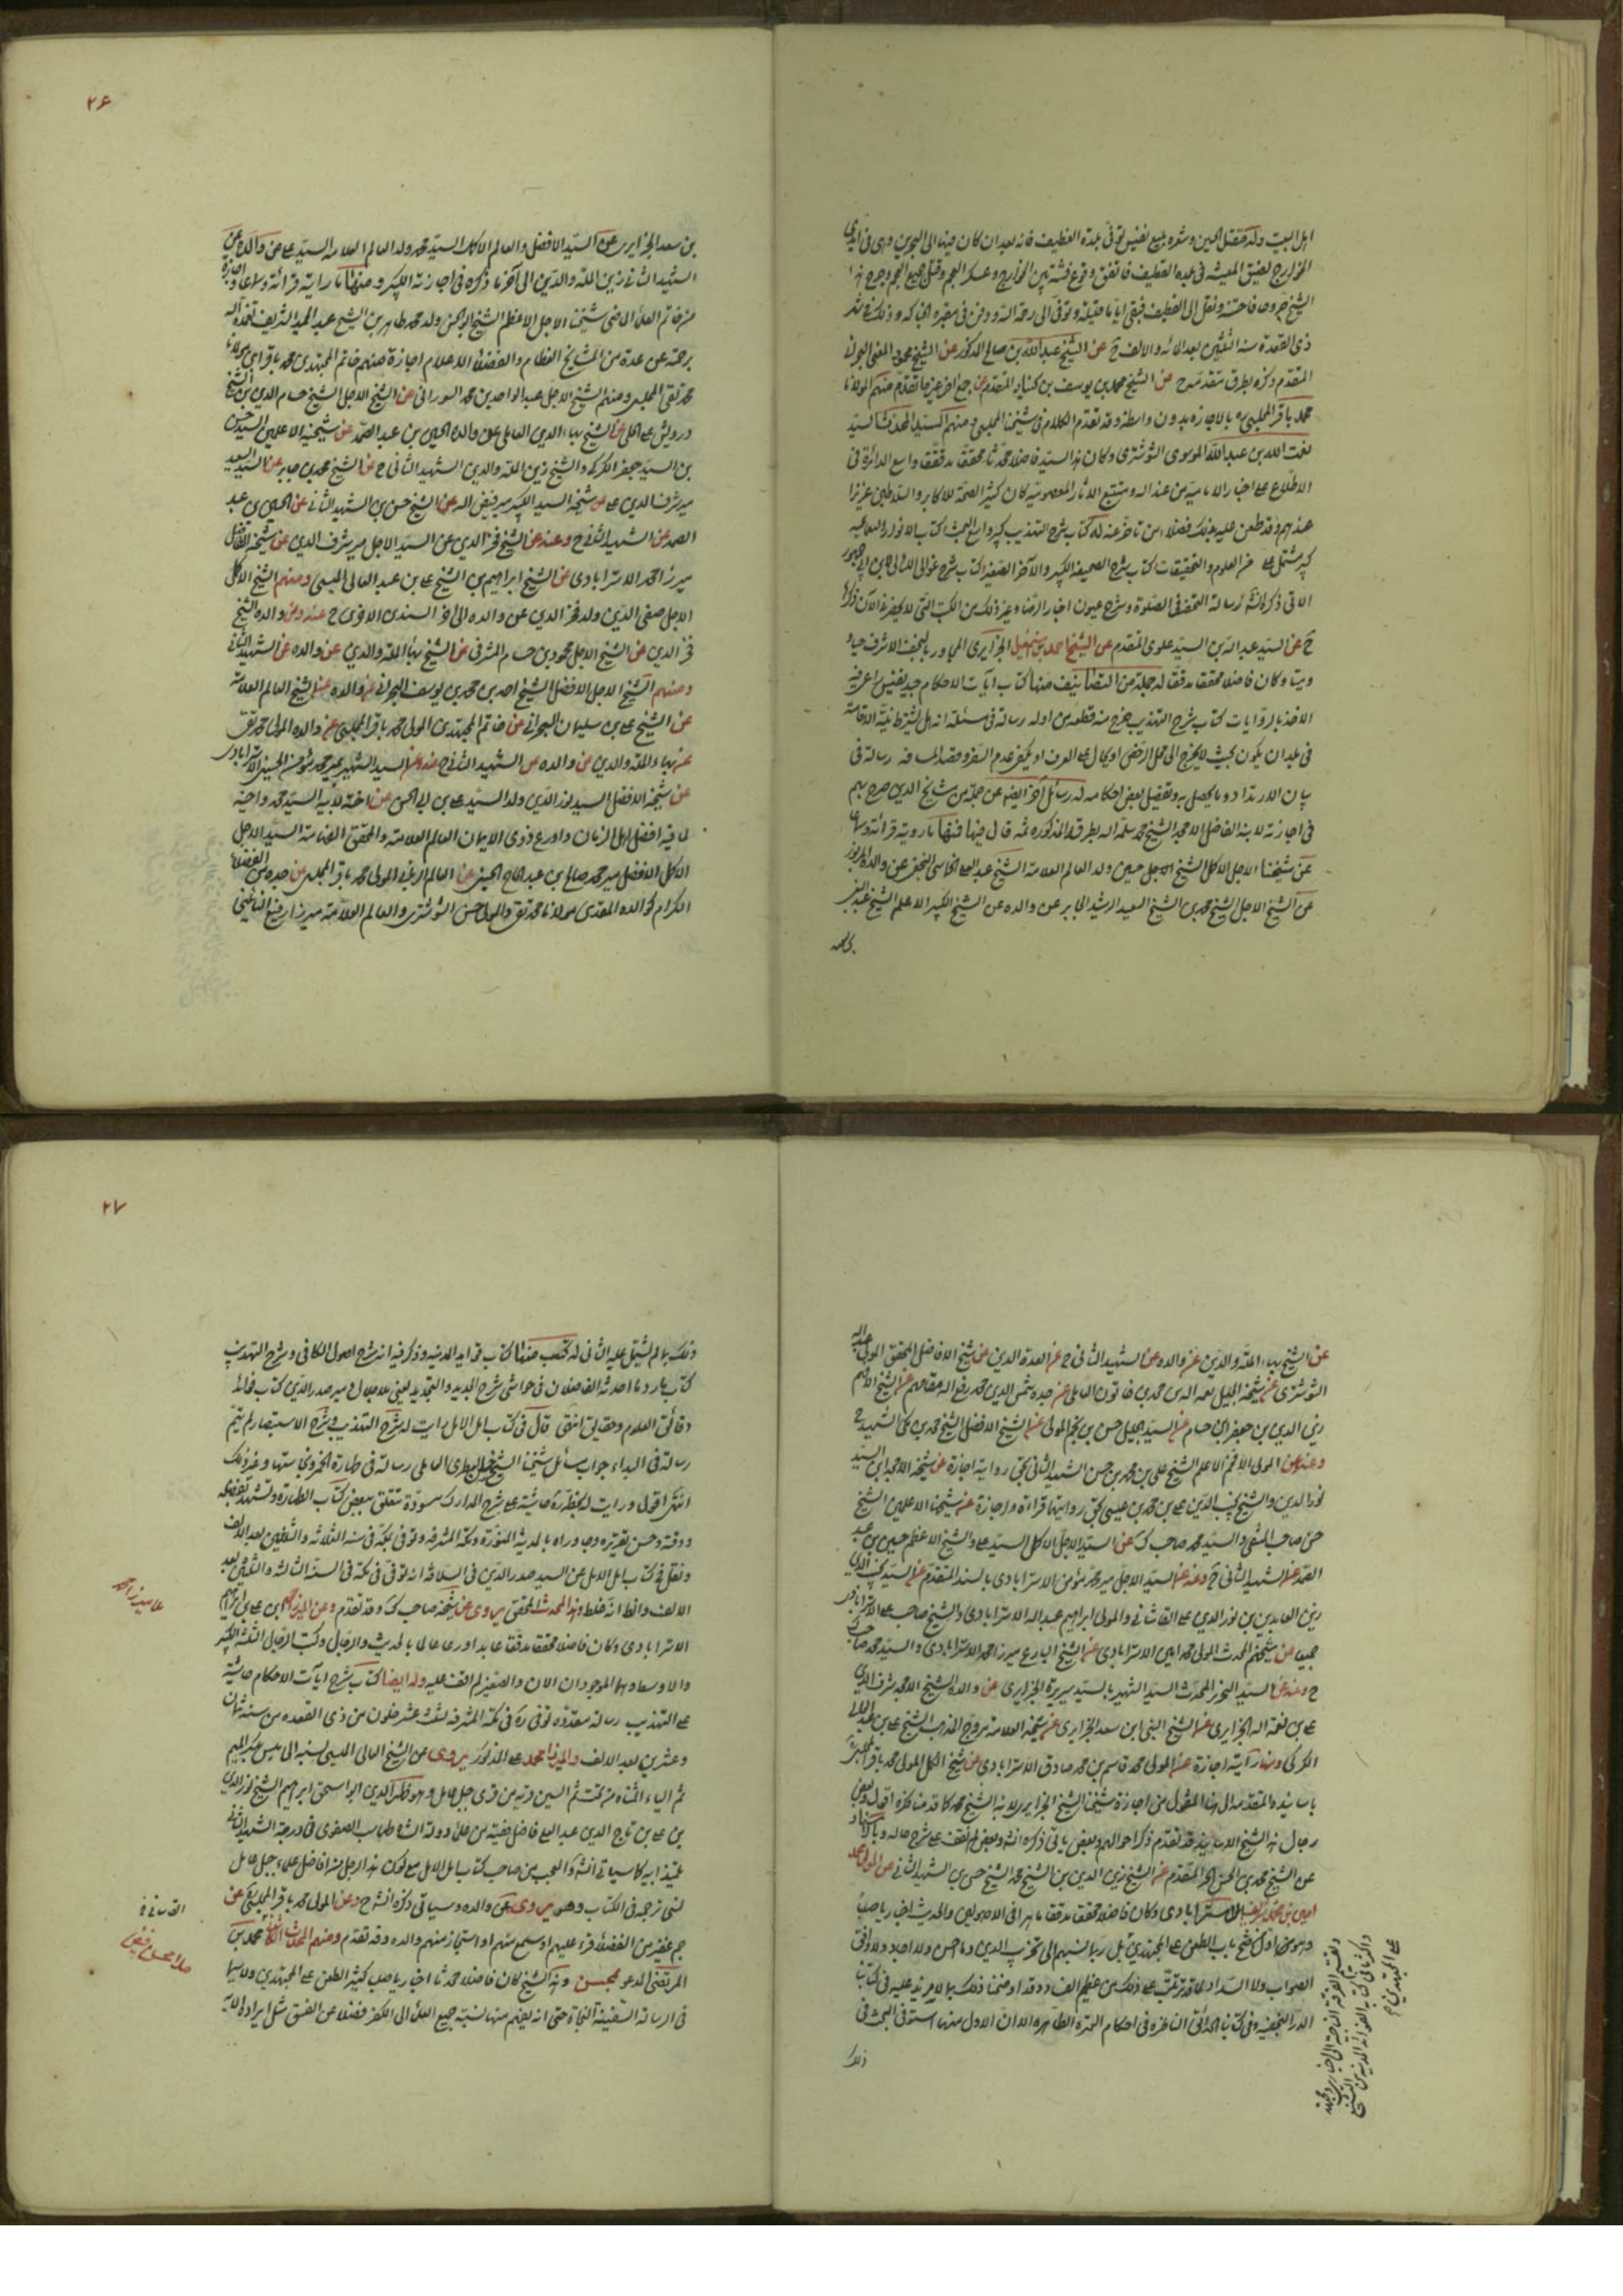 اهل البيت وله مقتل الحسين وشعره بليغ نفيس توفى ببلدة القطيف فانه بعد ان كان فيها الى البحرين وهى فى ايدى
الخوارج لضيق المعيشة فى بلده القطيف فاتفق وقوع فتنة بين الخوارج وعسكر العجم وقتل جميع العجم وجرح هذا
الشيخ جروحا فاحشة ونقل الى القطيف فبقى اياما قليلة وتوفى الى رحمة الله ودفن فى مقبرة الحباكة وذلك فى شهر
ذى القعدة سنة الثلثين بعد المائة والالف ح عن الشيخ عبد الله بن صالح المذكور عن الشيخ محمود المقدم
المقدم ذكره بطرقه المتقدمة ح عن الشيخ محمد بن يوسف بن كنبار المتقدم عن جمع اخر غير ما تقدم منهم المولانا
محمد باقر المجلسى ره بالاجازه بدون واسطة وقد تقدم الكلام فى شيخنا المجلسى ومنهم السيد المحدث السيد
نعمت الله بن عبد الله الموسوى الشوشترى وكان هذا السيد فاضلا محدثا محققا مدققا واسع الدائرة فى
الاطلاع على اخبار الامامية وتتبع الاثار المعصومية كان كثير الصحبة للاكابر والسلاطين عزيزا
عندهم وقد طعن عليه بذلك بعض من تاخر عنه له كتاب شرح التهذيب كبير كتاب الانوار النعمانيه
كبير مشتمل على كثير العلوم والتحقيقات كتاب شرح الصحيفة الكبير والاخر الصغير كتاب شرح غوالى اللئالى لابن ابى جمهور
الاتى ذكره انشاء رسالة التحفة فى الصلوة وشرح عيون اخبار الرضا وغير ذلك من الكتب التى لا يحضرنى الان ذكرها
ح عن السيد عبد الله بن السيد علوى المتقدم عن الشيخ احمد بن اسمعيل الجزايرى المجاور بالنجف الاشرف حيا
وميتا وكان فاضلا محققا مدققا له جملة من التصانيف منها كتاب آيات الاحكام جيد نفيس
الاخذ بالروايات كتاب شرح التهذيب خرج منه قطعة من اوله رسالة فى مسئلة انه هل يشترط نية الاقامة
فى بلد ان يكون بحيث لا يخرج الى محل الترخص او يحال على العرف او يكفى عدم السفر وقصد المسافة رسالة فى
بيان الارتداد وما يحصل به وتفصيل بعض احكامه له رسائل اخر ايضا عن جملة من مشايخ الدين صرح بهم
فى اجازته لابنه الفاضل الامجد الشيخ محمد سلمه الله بطرقه المذكوره ثمه قال فيها فمنها ما رويته قرائة وسماعا
عن شيخنا الاجل الاكمل الشيخ الاجل حسين ولد العالم العلامة الشيخ عبد على الخماسى النجفى عن والده المزبور
عن الشيخ الاجل الشيخ محمد بن الشيخ السعيد الرشيد الجابر عن والده عن الشيخ الكبير الاعلم الشيخ عبد النبى
۲۶
بن سعد الجزايرى عن السيد الافضل والعالم الاكمل السيد محمد ولد العالم العلامه السيد على عن والده عن
الشهيد الثانى زين الملة والدين الى آخر ما ذكره فى اجازته الكبير ومنها ما رايته قرائة وسماعا واجازة
عن خاتم العلماء الماضى شيخنا الاجل الاعظم الشيخ ابو الحسن ولد محمد طاهر بن الشيخ عبد الحميد الشريف تغمده الله
برحمته عن عدة من المشايخ العظام والفضلاء الاعلام اجازة منهم خاتم المجتهدين محمد باقر ابن مولانا
محمد تقى المجلسى ومنهم الشيخ الاجل عبد الواحد بن محمد البورانى عن الشيخ الاجل الشيخ حسام الدين بن الشيخ
درويش على الحلى عن الشيخ بهاء الدين العاملى عن والده الحسين بن عبد الصمد عن شيخيه الاعلمين السيد حسن
بن السيد جعفر الكركى والشيخ زين الملة والدين الشهيد الثانى ح عن الشيخ محمد بن جابر عن السيد السعيد
مير شرف الدين على عن شيخه السيد الكبير مير فيض الله عن الشيخ حسن بن الشهيد الثانى عن الحسين بن عبد
الصمد عن الشهيد الثانى ح وعنه عن الشيخ فخر الدين عن السيد الاجل مير شرف الدين عن شيخه الفاضل
ميرزا محمد الاسترابادى عن الشيخ ابراهيم بن الشيخ على بن عبد العالى الميسى ومنهم الشيخ الاكمل
الاجل صفى الدين ولد فخر الدين عن والده الى اخر السندين الاخرى ح عنه عن والده الشيخ
فخر الدين عن الشيخ الاجل محمود بن حسام المشرفى عن الشيخ بهاء الملة والدين عن والده عن الشهيد الثانى
ومنهم الشيخ الاجل الافضل الشيخ احمد بن محمد بن يوسف البحرانى عن والده عن الشيخ العالم العلامة
عن الشيخ على بن سليمان البحرانى عن خاتم المجتهدين المولى محمد باقر المجلسى عن والده المولى محمد تقى
عن بهاء الملة والدين عن والده عن الشهيد الثانى ح عنه عن السيد الشهير مير محمد مؤمن الحسينى الاسترابادى
عن شيخه الافضل السيد نور الدين ولد السيد على بن ابى الحسن عن اخيه لابيه السيد محمد واخيه
لامه افضل اهل الزمان واورع ذوى الايمان العالم العلامة والمحقق الفهامة السيد الاجل
الاكمل الافضل مير محمد صالح بن عبد الواسع الحسينى عن العالم الربانى المولى محمد باقر المجلسى عن جده من الفضلاء
الكرام كوالده المقدس مولانا محمد تقى والمولى حسن الشوشترى والعالم العلامة ميرزا رفيع النائينى
عن الشيخ بهاء الملة والدين عن والده عن الشهيد الثانى ح عن العدة الذين عن شيخ الافاضل المحقق المولى عبد الله
الشوشترى عن شيخه الجليل نعمة الله بن محمد بن خاتون العاملى عن جده شمس الدين محمد رفع الله مقامهم عن الشيخ الاكرم
زين الدين بن جعفر ابن حسام عن السيد الجليل حسن بن نجم المولى عن الشيخ الافضل الشيخ محمد بن مكى الشهيد ح
وعنه عن المولى الافخم الاعلم الشيخ على بن محمد بن حسن الشهيد الثانى بحق رواية اجازة عن شيخه الامجد ابن السيد
نور الدين والشيخ نجيب الدين على بن محمد بن عيسى بحق روايتهما قراءة واجازة عن شيخيهما الاعلمين الشيخ
حسن صاحب المنتقى والسيد محمد صاحب ك عن السيد الاجل الاكمل السيد على والشيخ الاعظم حسين بن عبد
الصمد عن الشهيد الثانى ح وعنه عن السيد الاجل مير محمد مؤمن الاسترابادى بالسند المتقدم عن السيد
زين العابدين بن نور الدين على القاشانى والمولى ابراهيم عبد الله الاسترابادى والشيخ صاحب على الاسترابادى
جميعا عن شيخهم المحدث المولى محمد امين الاسترابادى عن الشيخ البارع ميرزا محمد الاسترابادى والسيد محمد صاحب ك
ح وعنه عن السيد النحرير المحدث السيد الشهير بالسيد الجزايرى عن والده الشيخ الامجد شرف الدين
على بن نعمة الله الجزايرى عن الشيخ النبى ابن سعد الجزايرى عن شيخه العلامة مروج المذهب الشيخ على بن عبد العالى
الكركى ومنها رآيته اجازة عن المولى محمد قاسم بن محمد صادق الاسترابادى عن شيخ الكل المولى محمد باقر المجلسى
باسانيده المتقدمه الى هنا المنقول من اجازة شيخنا الشيخ الجزايرى لابنه الشيخ محمد كما قدمنا ذكره اقول وبعض
رجال هذه الشيخ الاسانيد قد تقدم ذكر احوالهم وبعض ياتى ذكره انشاء وبعض لم نقف على شرح حاله وبالاسناد
عن الشيخ محمد بن الحسن الحر المتقدم عن الشيخ زين الدين بن الشيخ محمد الشيخ حسن بن الشهيد الثانى عن المولى محمد
امين بن محمد شريف الاسترابادى وكان فاضلا محققا مدققا ماهرا فى الاصولين والحديث اخباريا صلبا
وهو من اول من فتح باب الطعن على المجتهدين بل ربما نسبهم الى تخريب الدين وما احسن ولا اجاد ولا وافق
الصواب ولا السداد لما قد ترتب على ذلك من عظيم الفساد وقد اوضحنا ذلك بما لا مزيد عليه فى كتاب
الدرر النجفيه وفى كتاب الحدائق الناضره فى احكام العترة الطاهره الا ان الاول منهما استوفى البحث فى
ذلك
على المجتهدين
۲۷
ذلك بما لم يشتمل عليه الثانى له كتب منها كتاب فوايد المدنيه وذكر فيه انه شرح اصول الكافى وشرح التهذيب
كتاب رد ما احدثه الفاضلان فى حواشى شرح الجديد والتجريد يعنى ملا جلال ومير صدر الدين كتاب فوائد
دقائق العلوم وحقايق انتهى قال فى كتاب امل الامل رايت له شرح التهذيب وشرح الاستبصار لم يتم
رسالة فى البداء جواب مسائل شيخنا الشيخ حسين الظهيرى العاملى رسالة فى طهارة الخمر ونجاستها وغير ذلك
انتهى اقول ورايت له بخطه ره حاشية على شرح المدارك مسودة تتعلق ببعض كتاب الطهارة وتشهد بفضله
ودقته وحسن تقريره وجاوره بالمدينة المنورة ومكة المشرفه وتوفى بمكة فى سنة الثلاثه والثلثين بعد الالف
ونقل فى كتاب امل الامل عن السيد صدر الدين فى السلافه انه توفى فى مكة فى السنة الثالثه والثلثين بعد
الالف وانظ انه غلط وهذا المحدث المحقق يروى عن شيخه صاحب ك وقد تقدم وعن الميرزا محمد بن على بن ابراهيم
الاسترابادى وكان فاضلا محققا مدققا عابدا ورعا عالما بالحديث والرجال وكتب الرجال الثلثة الكبير
والاوسط وهما الموجودان الان والصغير لم اقف عليه وله ايضا كتاب شرح ايات الاحكام حاشية
على التهذيب رسائل متعدده توفى ره فى مكة المشرفه لثلث عشر خلون من ذى القعده من سنة ثمان
وعشرين بعد الالف والميرزا محمد على المذكور يروى عن الشيخ العالى الميسى نسبه الى ميس بكسر الميم
ثم الياء المثناه من تحت ثم السين قريه من قرى جبل عامل وهو ظهير الدين ابو اسحق ابراهيم الشيخ نور الدين
بن على بن تاج الدين عبد العالى فاضل فقيه من علماء دولة الشاه طهماسب الصفوى فى درجة الشهيد الثانى
تلميذ ابيه كما سياتى انشاء والعجب من صاحب كتاب امل الامل مع كون هذا الرجل من افاضل علماء جبل عامل
لنى ترجمه فى الكتاب وهو يروى عن والده وسياتى ذكره انشاء ح وعن المولى محمد باقر المجلسى عن
جم غفير من الفضلاء قرء عليهم او سمع منهم او استجاز منهم والده وقد تقدم ومنهم المحدث الكاشانى محمد بن
المرتضى المدعو بمحسن وهذا الشيخ كان فاضلا محدثا اخباريا صلبا كثير الطعن على المجتهدين ولا سيما
فى الرسالة السفينة النجاة حتى انه يفهم منها نسبة جميع العلماء الى الكفر فضلا عن الفسق مثل ايراده الآية
ملا محسن فيض